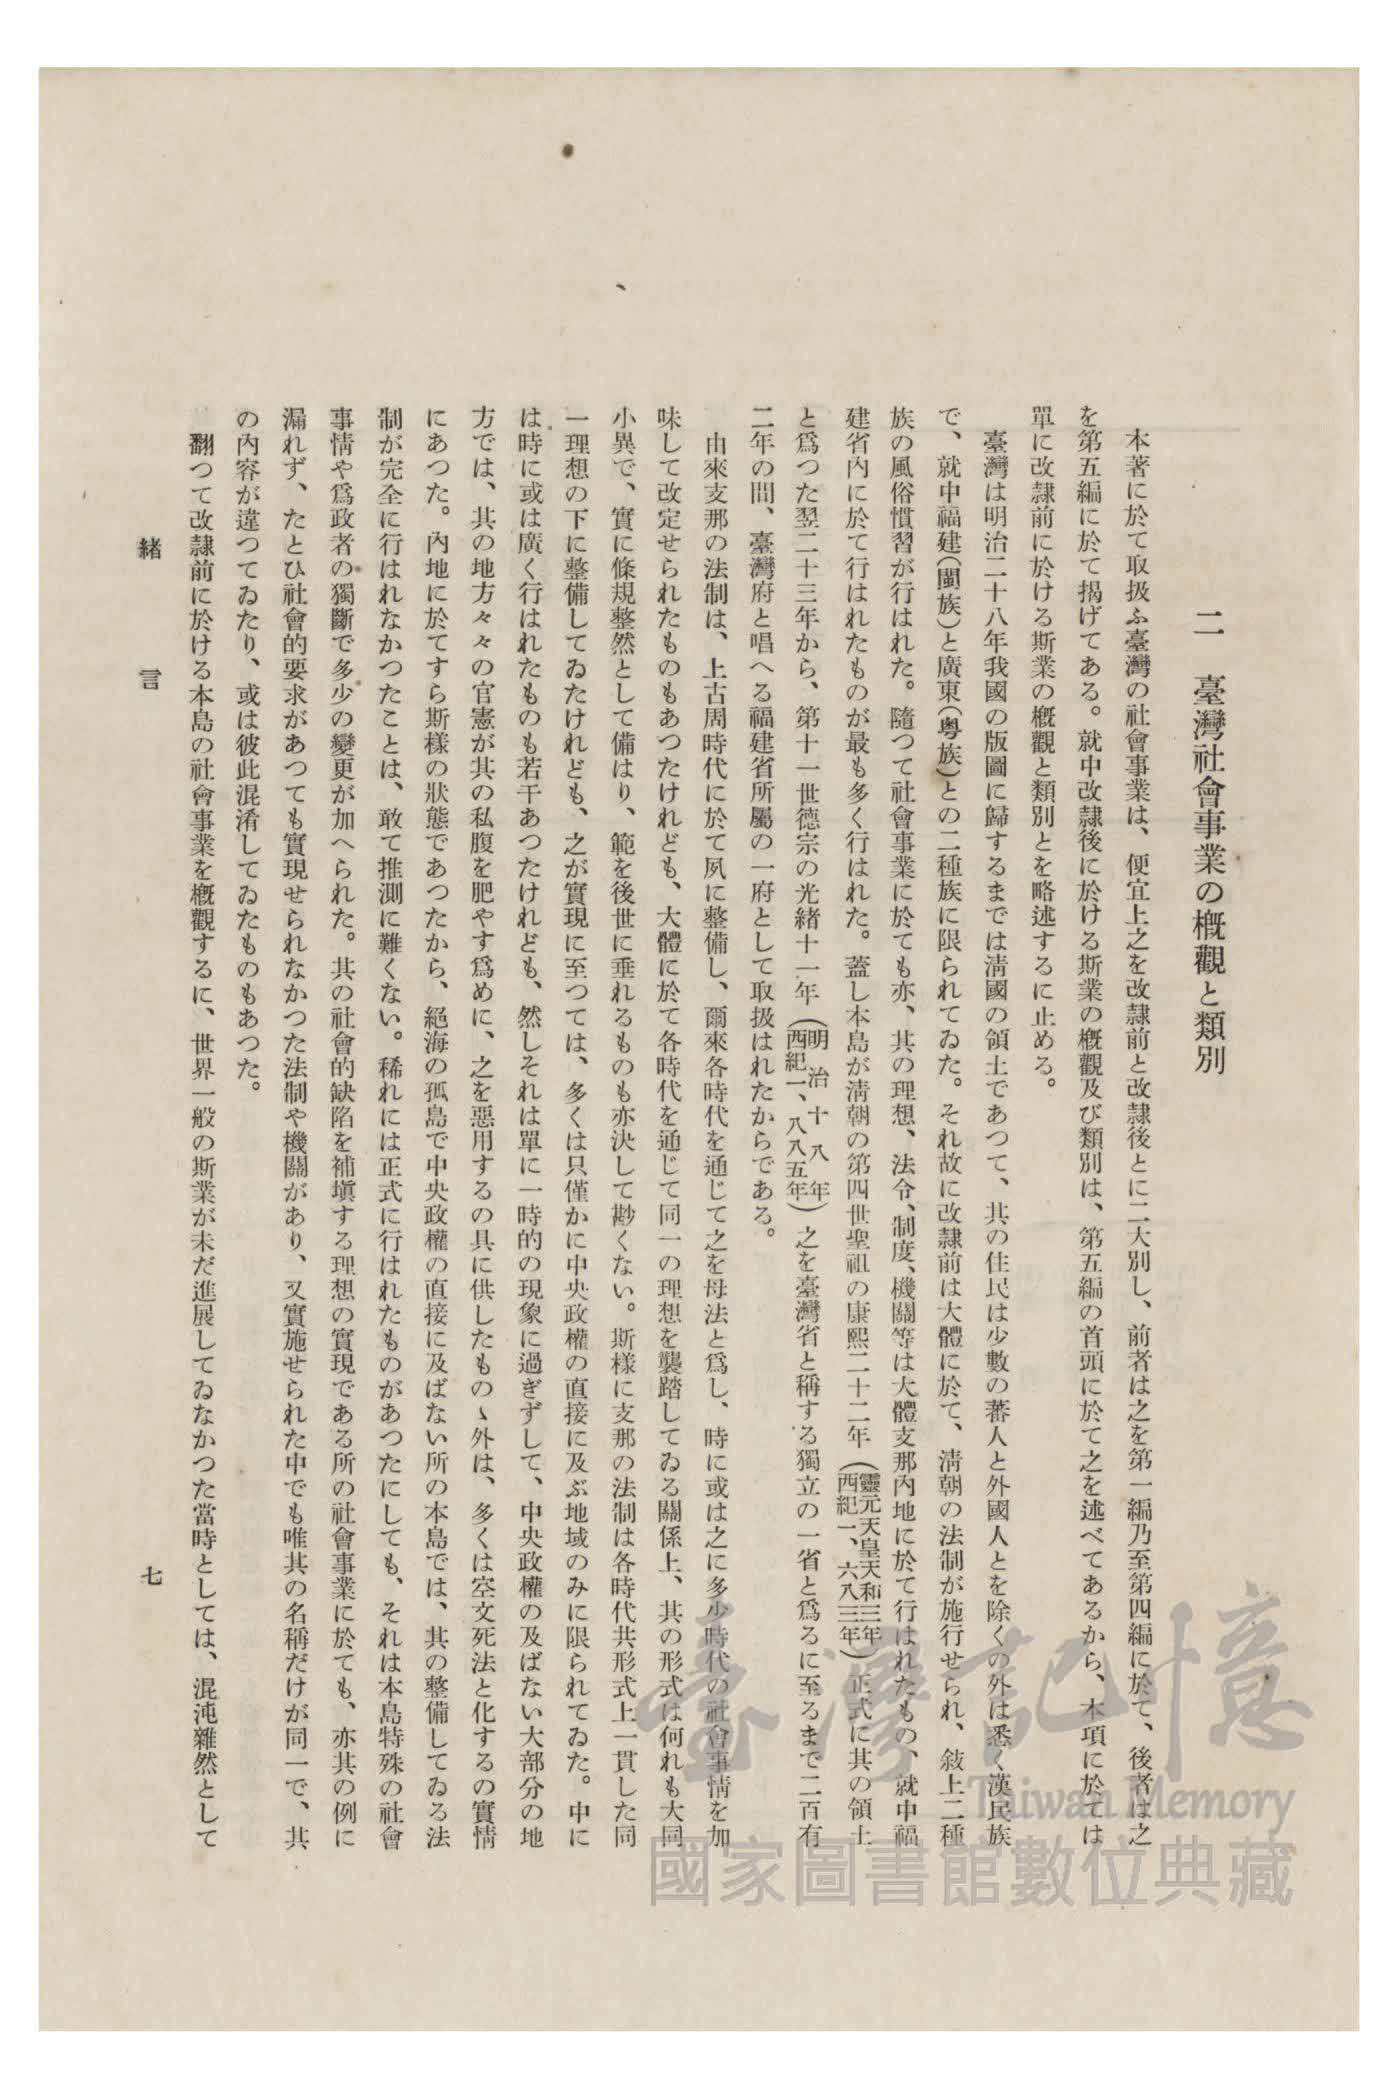 二　臺灣社會事業の概觀と類別
本著に於て取扱ふ臺灣の社會事業は、便宜上之を改隷前と改隷後とに二大別し、前者は之を第一編乃至第四編に於て、後者は之
を第五編に於て揭げてある。就中改隷後に於ける斯業の概觀及び類別は、第五編の首頭に於て之を述べてあるから、本項に於ては
單に改隷前に於ける斯業の概觀と類別とを略述するに止める。
臺灣は明治二十八年我國の版圖に歸するまでは淸國の領土であつて、其の住民は少數の蕃人と外國人とを除くの外は悉く漢民族
で、就中福建（閩族）と廣東（粤族）との二種族に限られてゐた。それ故に改隷前は大體に於て、淸朝の法制が施行せられ、敍上二種
族の風俗慣習が行はれた。隨つて社會事業に於ても亦、其の理想、法令、制度、機關等は大體支那內地に於て行はれたもの、就中福
建省內に於て行はれたものが最も多く行はれた。蓋し本島が淸朝の第四世聖祖の康熙二十二年（靈元天皇天和三年西紀一、六八三年）正式に其の領土
と爲つた翌二十三年から、第十一世德宗の光緖十一年（明治十八年西紀一、八八五年）之を臺灣省と稱する獨立の一省と爲るに至るまで二百有
二年の間、臺灣府と唱へる福建省所屬の一府として取扱はれたからである。
由來支那の法制は、上古周時代に於て夙に整備し、爾來各時代を通じて之を母法と爲し、時に或は之に多少時代の社會事情を加
味して改定せられたものもあつたけれども、大體に於て各時代を通じて同一の理想を襲踏してゐる關係上、其の形式は何れも大同
小異で、實に條規整然として備はり、範を後世に垂れるものも亦決して尠くない。斯樣に支那の法制は各時代共形式上一貫した同
一理想の下に整備してゐたけれども、之が實現に至つては、多くは只僅かに中央政權の直接に及ぶ地域のみに限られてゐた。中に
は時に或は廣く行はれたものも若干あつたけれども、然しそれは單に一時的の現象に過ぎずして、中央政權の及ばない大部分の地
方では、其の地方々々の官憲が其の私腹を肥やす爲めに、之を惡用するの具に供したものゝ外は、多くは空文死法と化するの實情
にあつた。內地に於てすら斯樣の狀態であつたから、絕海の孤島で中央政權の直接に及ばない所の本島では、其の整備してゐる法
制が完全に行はれなかつたことは、敢て推測に難くない。稀れには正式に行はれたものがあつたにしても、それは本島特殊の社會
事情や爲政者の獨斷で多少の變更が加へられた。其の社會的缺陷を補塡する理想の實現である所の社會事業に於ても、亦其の例に
漏れず、たとひ社會的要求があつても實現せられなかつた法制や機關があり、又實施せられた中でも唯其の名稱だけが同一で、其
の內容が違つてゐたり、或は彼此混淆してゐたものもあつた。
翻つて改隷前に於ける本島の社會事業を概觀するに、世界一般の斯業が未だ進展してゐなかつた當時としては、混沌雜然として
緖言
七
臺灣記憶
Taiwan Memory
國家圖書館數位典藏